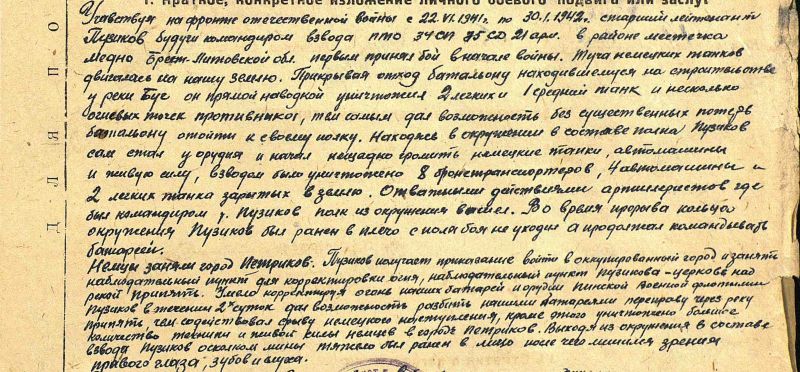 1. Краткое, конкретное изложение личного боевого подвига или заслуг
Участвуя на фронте отечественной войны с 22.VI.1941г. по 30.1.1942г. старший лейтенант
Пузиков будучи командиром взвода ПТО 34СП 75СД 21арм. в районе местечка
Медно Брест-Литовской обл. первым принял бой в начале войны. Туча немецких танков
двигалась на нашу землю. Прикрывая отход батальону находившемуся на строительстве
у реки Буг он прямой наводкой уничтожил 2 легких и 1 средний танк и несколько
огневых точек противника, тем самым дал возможность без существенных потерь
батальону отойти к своему полку. Находясь в окружении в составе полка Пузиков
сам стал у орудия и начал нещадно громить немецкие танки, автомашины
и живую силу, взводом было уничтожено 8 бронетранспортеров, 4 автомашины и
2 легких танка зарытых в землю. Отважными действиями артиллеристов где
был командиром т. Пузиков полк из окружения вышел. Во время прорыва кольца
окружения Пузиков был ранен в плечо с поля боя не уходил а продолжал командывать
батареей.
Немцы заняли город Петриков. Пузиков получает приказание войти в оккупированный город и занять
наблюдательный пункт для корректировки огня, наблюдательный пункт Пузикова – церковь над
рекой Припять. Умело корректируя огонь наших батарей и орудий Пинской Военной флотилии
Пузиков в течении 2х суток дал возможность разбить нашими батареями переправу через реку
Припять, чем содействовал срыву немецкого наступления, кроме этого уничтожено большое
количество техники и живой силы немцев в городе Петриков. Выходя из окружения в составе
взвода Пузиков осколком мины тяжело был ранен в лицо после чего лишился зрения
правого глаза, зубов и слуха.
ДЛЯ ПО